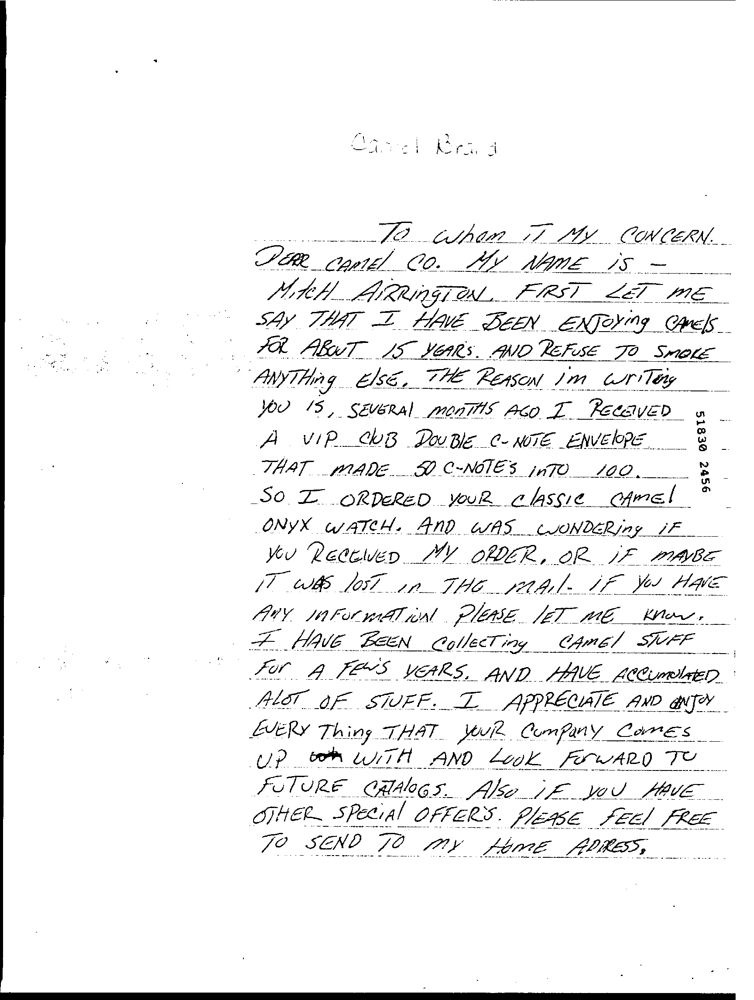 Camel Brand
To whom iT MY CONCERN.
DEAR CAMEl CO. MY NAME iS –
MitcH AiRRingTON. FIRST LET ME
SAY THAT I HAVE BEEN ENJOYing CAMElS
FOR ABOUT 15 YEAR'S. AND REFUSE TO SMOKE
ANYTHing ElSE. THE REASON i'm wriTing
YOU iS, SEVERAl monTHS AGO I RECEIVED
A VIP CluB DOUBlE C-NOTE ENVElOPE
THAT MADE 50 C-NOTE'S inTO 100.
SO I ORDERED YOUR ClASSIC CAMEl
ONYX WATCH. AND WAS WONDERing iF
YOU RECEIVED MY ORDER, OR iF MAYBE
iT WAS lOST in THE MAil. iF YOU HAVE
ANY inFORMATiON PlEASE lET ME KNOW.
I HAVE BEEN CollECTing CAMEl STUFF
FOR A FEW'S YEARS. AND HAVE ACCUMULATED
ALOT OF STUFF. I APPRECIATE AND ENJOY
EVERY Thing THAT YOUR COMPANY COMES
UP WITH AND LOOK FORWARD TO
FUTURE CATAlOGS. AlSO iF YOU HAVE
OTHER SPECiAl OFFER'S. PlEASE FEEl FREE
TO SEND TO MY HOME ADDRESS.
51830 2456